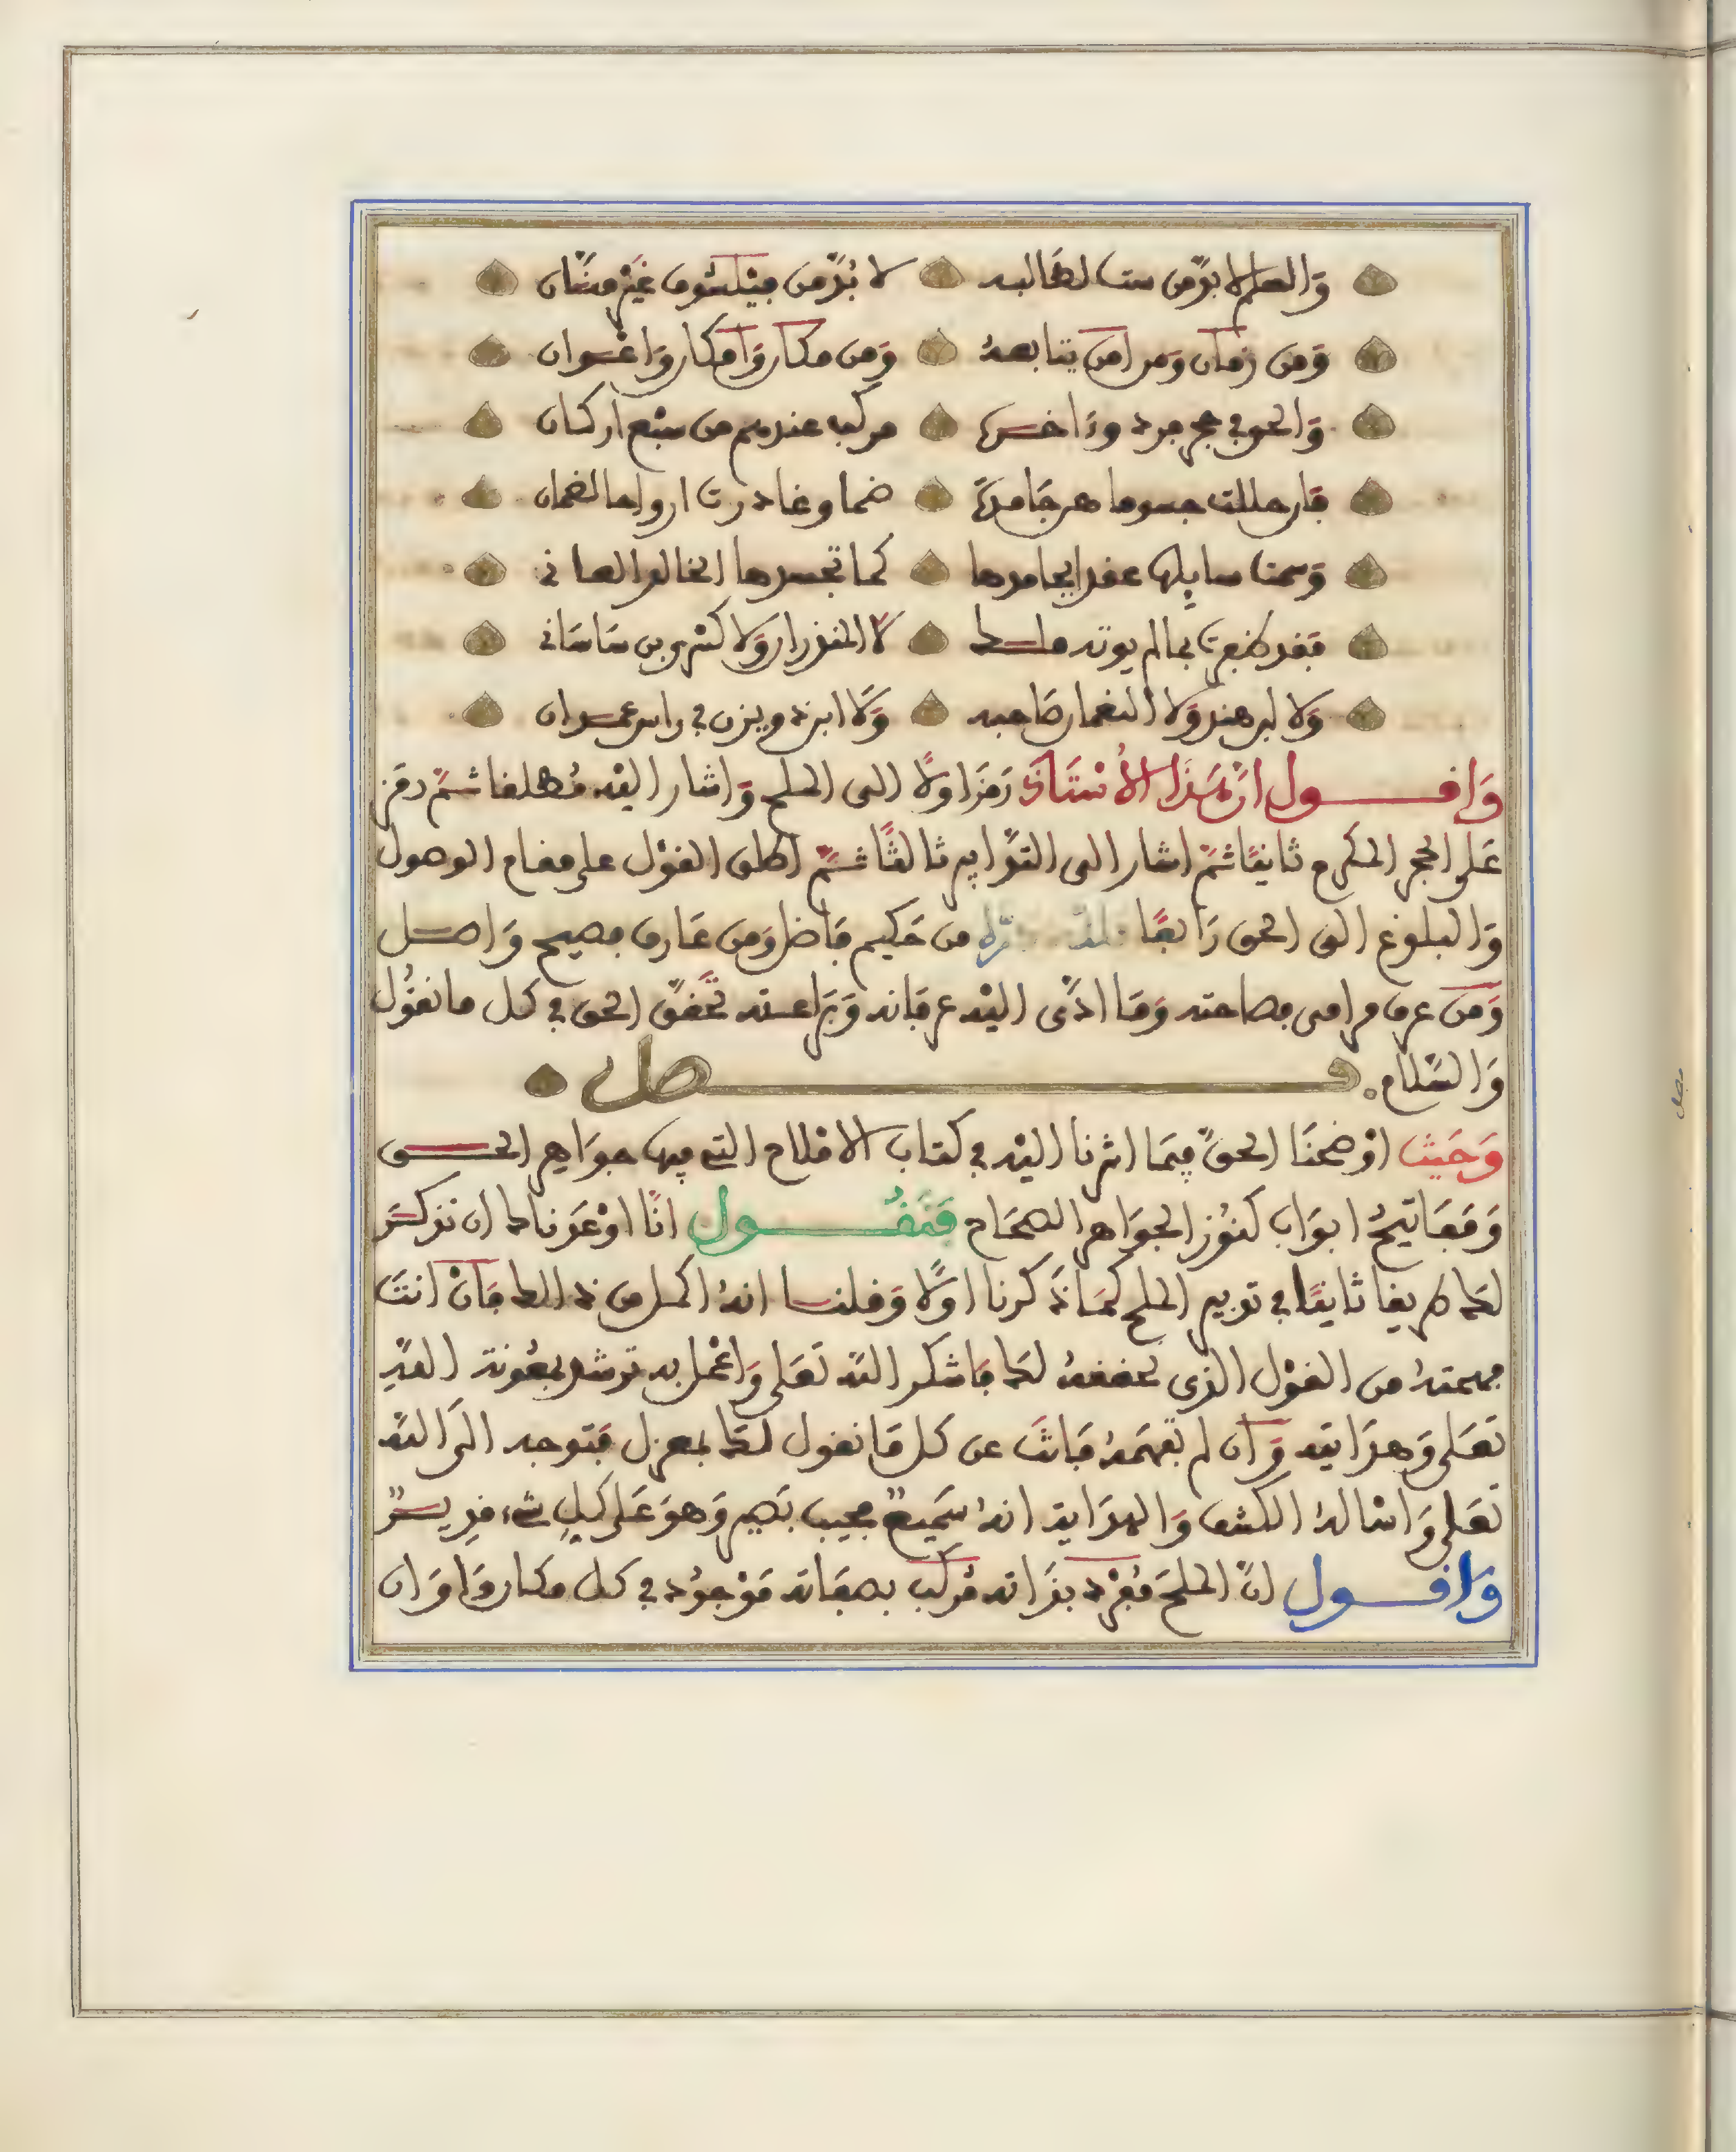 وَالعلم لا بدّ من ست لطَالبه لا بُدّ من فيلسُوف غَيْر منّان
وَمن زمان وَمرامن يتابعهُ وَمن مكان وَامكان وَاعْوان
وَالحق في حجر فرد وذا مركب عندهم من سَبْع اركان
فان حللت جسوما هي جَامدة ضما وغادرت ارواحا لضمان
وَسمنا سايلها عقدا بجامدها كما تجسدها الخالق العاني
فقد ظفرت بما لم يوته ملك لا المنذران وَلا كسْرى بن سَاسَاني
وَلا ابن هند وَلا النعمان صَاحبه وَلا ابن ذي يزن في راس غمدان
وَاقول ان هَذا الأسْتَاذ رَمَز اولًا الى الملح وَاشار اليْه مُطلقا ثمّ رمز
عَلى الحجر المكرم ثانيًا ثمّ اشار الى التدَّابير ثالثًا ثمّ اطلق القوْل على مقام الوصول
وَالبلوغ الى الحق رَابعًا فلله درّه من حَكيم فاضل وَمن عَارف فصيح وَاصل
وَمن عرف مرامى فصاحته وَمَا ادّى اليْه عرفانه وَبَراعته تحّققَ الحق في كل ما نقُول
وَالسّلام. فصل
وَحَيث اوْضحنَا الحقّ فيمَا اشرنا اليْه في كتاب الافلاح التي فيها جوَاهر الحق
وَمَفَاتيحُ ابوَاب كنُوز الجوَاهر الصحَاح فَنَقُول انّا اوْعَدناك ان نذكر
لك طريقا ثانيًا في تدبير الملح كمَا ذَكرنا اولًا وَقلنا انهُ اكمل من ذالك فَانْ انتَ
فهمتهُ من القوْل الذي نحققهُ لك فاشكر اللّه تَعَلى وَاعْمل به ترشد بمعُونة اللّهِ
تعَلى وَهدَايته وَان لم تفهَمهُ فَانتَ عن كل مَا نقول لك بمعزل فتوجه الَى اللّه
تَعَلى وَاسْالهُ الكشف وَالهدَاية انهُ سَميعٌ مجيب بَصير وَهوَ عَلى كلِ شيء قديرٌ
وَاقول انّ الملحَ مُفرَد بذَاته مُركب بصفَاته مَوْجوُد في كل مكان وَاوَان
فصل